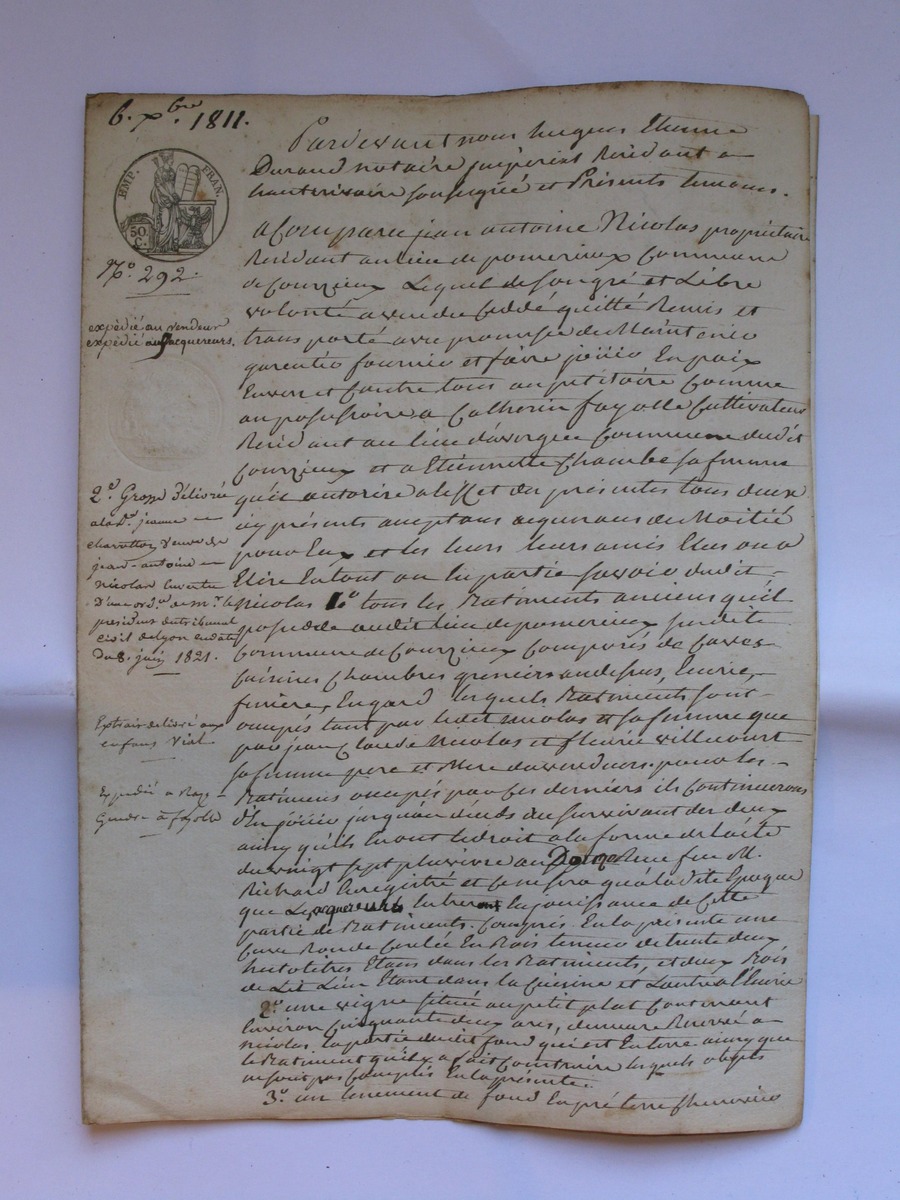 6. xbre 1811.
EMP. FRAN
50.
C.
No. 292.
expédié au vendeur
expédié aux acquereurs.
2e. Grosse délivrée
a la De. jeanne
charretton veuve de
jean-antoine
nicolas en vertu
D'une ordce. de mr. le
président du tribunal
civil de lyon en date
Du 8. juin 1821.
Extrait délivré aux
enfans Vial
Expedié a
Gendre à fayolle
Pardevant nous huques Etienne
Durand notaire imperial Residant a
hauterivoire soussigné et Présents temoins.
a Comparu jean antoine Nicolas propriétaire
Residant au lieu de pomerieux Commune
de Courzieux Lequel de son gré et Libre
volonté a vendu Ceddé quitté Remis et
transporté avec promesse de Maintenir
garentir fournir et faire jouir En paix
Envers et Contre tous au petitoire Comme
au posessoire a Catherin fayolle Cultivateur
Residant au lieu d'avergue Commune dudit
Courzieux et a Etiennette Chambe sa femme
qu'il autorise a l'effet des présentes tous deux
icy présents acceptans acquereurs de Moitié
pour Eux et les leurs leurs amis Elus ou a
Elire En tout ou En partie savoir dudit
Nicolas 1o. tous les Batiments anciens qu'il
possede audit lieu de pomerieux susdite
Commune de Courzieux Composés de Caves
Cuisines Chambres greniers au dessus, Ecurie,
feniere, Engard lesquels Batiments sont
occupés tant par ledit Nicolas et sa femme que
par jean Claude Nicolas et fleurie villecourt
sa femme pere et Mere du vendeur. pour les
Batimens occupés par Ces derniers ils Continueront
d'En jouir jusqu'au décès du survivant des deux
ainsy qu'ils En ont le droit a la forme de l'acte
du vingt sept pluviose an Douze Reçu feu M.
Richard Enregistré et Ce ne sera qu'à la dite Epoque
que Les acquereurs Entreront En jouissance de Cette
partie de Batiments. Compris En la présente une
Cuve Ronde Cerclée En Bois tenue de trente deux
hectolitres Etant dans les Batiments, et deux Bois
de Lit L'un Etant dans la Cuisine et L'autre a l'Ecurie
2o. une vigne située au petit plat Contenant
Environ Cinquante deux ares, demeure Reservé a
nicolas la partie dudit fond qui est En terre ainsy que
le Batiment qu'il y a fait Construire lesquels objets
ne sont pas Compris En la présente.
3o. un tenement de fond En pré terre Cheneviere